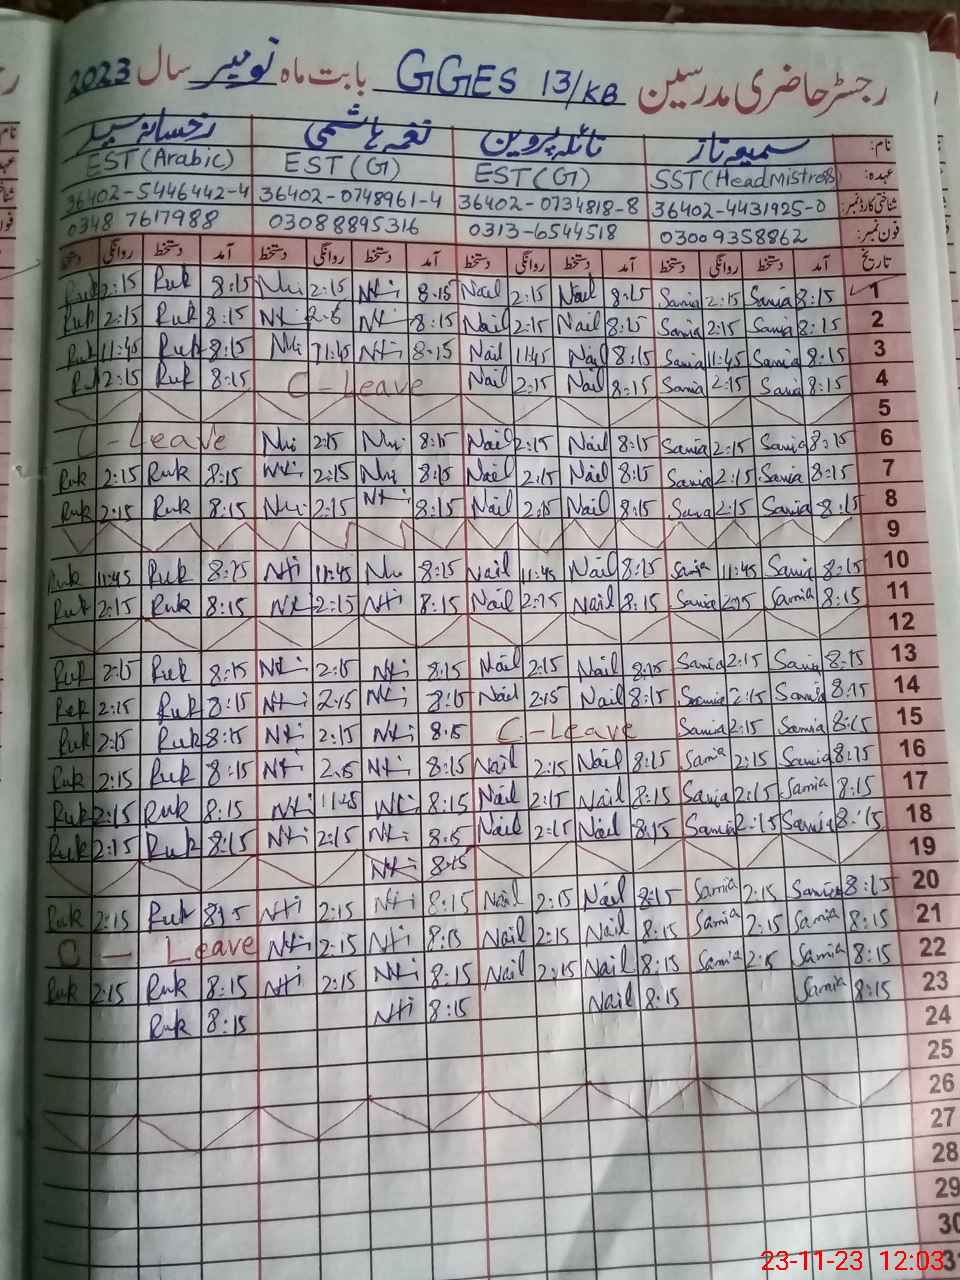 رجسٹر حاضری مدرسین GGES 13/KB بابت ماہ نومبر سال 2023
نام: سمیعہ ناز نائلہ پروین نغمہ ہاشمی رخسانہ سید
عہدہ: SST (Headmistress) EST (G) EST (G) EST (Arabic)
شناختی کارڈ نمبر: 36402-4431925-0 36402-0734818-8 36402-0748961-4 36402-5446442-4
فون نمبر: 03009358862 0313-6544518 03088895316 0348 7617988
تاریخ آمد دستخط روانگی دستخط آمد دستخط روانگی دستخط آمد دستخط روانگی دستخط آمد دستخط روانگی دستخط
1 8:15 Samia 2:15 Samia 8:15 Nail 2:15 Nail 8:15 2:15 8:15 Ruk 2:15 Ruk
2 8:15 Samia 2:15 Samia 8:15 Nail 2:15 Nail 8:15 8:15 Ruk 2:15 Ruk
3 8:15 Samia 11:45 Samia 8:15 Nail 11:45 Nail 8:15 11:45 8:15 Ruk 11:45 Ruk
4 8:15 Samia 2:15 Samia 8:15 Nail 2:15 Nail C-Leave 8:15 Ruk 2:15 Ruk
5
6 8:15 Samia 2:15 Samia 8:15 Nail 2:15 Nail 8:15 2:15 C-Leave
7 8:15 Samia 2:15 Samia 8:15 Nail 2:15 Nail 8:15 2:15 8:15 Ruk 2:15 Ruk
8 8:15 Samia 2:15 Samia 8:15 Nail 2:15 Nail 8:15 2:15 8:15 Ruk 2:15 Ruk
9
10 8:15 Samia 11:45 Samia 8:15 Nail 11:45 Nail 8:15 11:45 8:15 Ruk 11:45 Ruk
11 8:15 Samia 2:15 Samia 8:15 Nail 2:15 Nail 8:15 2:15 8:15 Ruk 2:15 Ruk
12
13 8:15 Samia 2:15 Samia 8:15 Nail 2:15 Nail 8:15 2:15 8:15 Ruk 2:15 Ruk
14 8:15 Samia 2:15 Samia 8:15 Nail 2:15 Nail 8:15 2:15 8:15 Ruk 2:15 Ruk
15 8:15 Samia 2:15 Samia C-Leave 2:15 8:15 Ruk 2:15 Ruk
16 8:15 Samia 2:15 Samia 8:15 Nail 2:15 Nail 8:15 8:15 Ruk 2:15 Ruk
17 8:15 Samia 2:15 Samia 8:15 Nail 2:15 Nail 8:15 8:15 Ruk 2:15 Ruk
18 8:15 Samia 2:15 Samia 8:15 Nail 2:15 Nail 2:15 8:15 Ruk 2:15 Ruk
19 8:15
20 8:15 Samia 2:15 Samia 8:15 Nail 2:15 Nail 8:15 2:15 8:15 Ruk 2:15 Ruk
21 8:15 Samia 2:15 Samia 8:15 Nail 2:15 Nail 8:15 2:15 C - Leave
22 8:15 Samia 2:15 Samia 8:15 Nail 2:15 Nail 8:15 2:15 8:15 Ruk 2:15 Ruk
23 8:15 Samia 8:15 Nail 8:15 8:15 Ruk
24
25
26
27
28
29
30
23-11-23 12:03